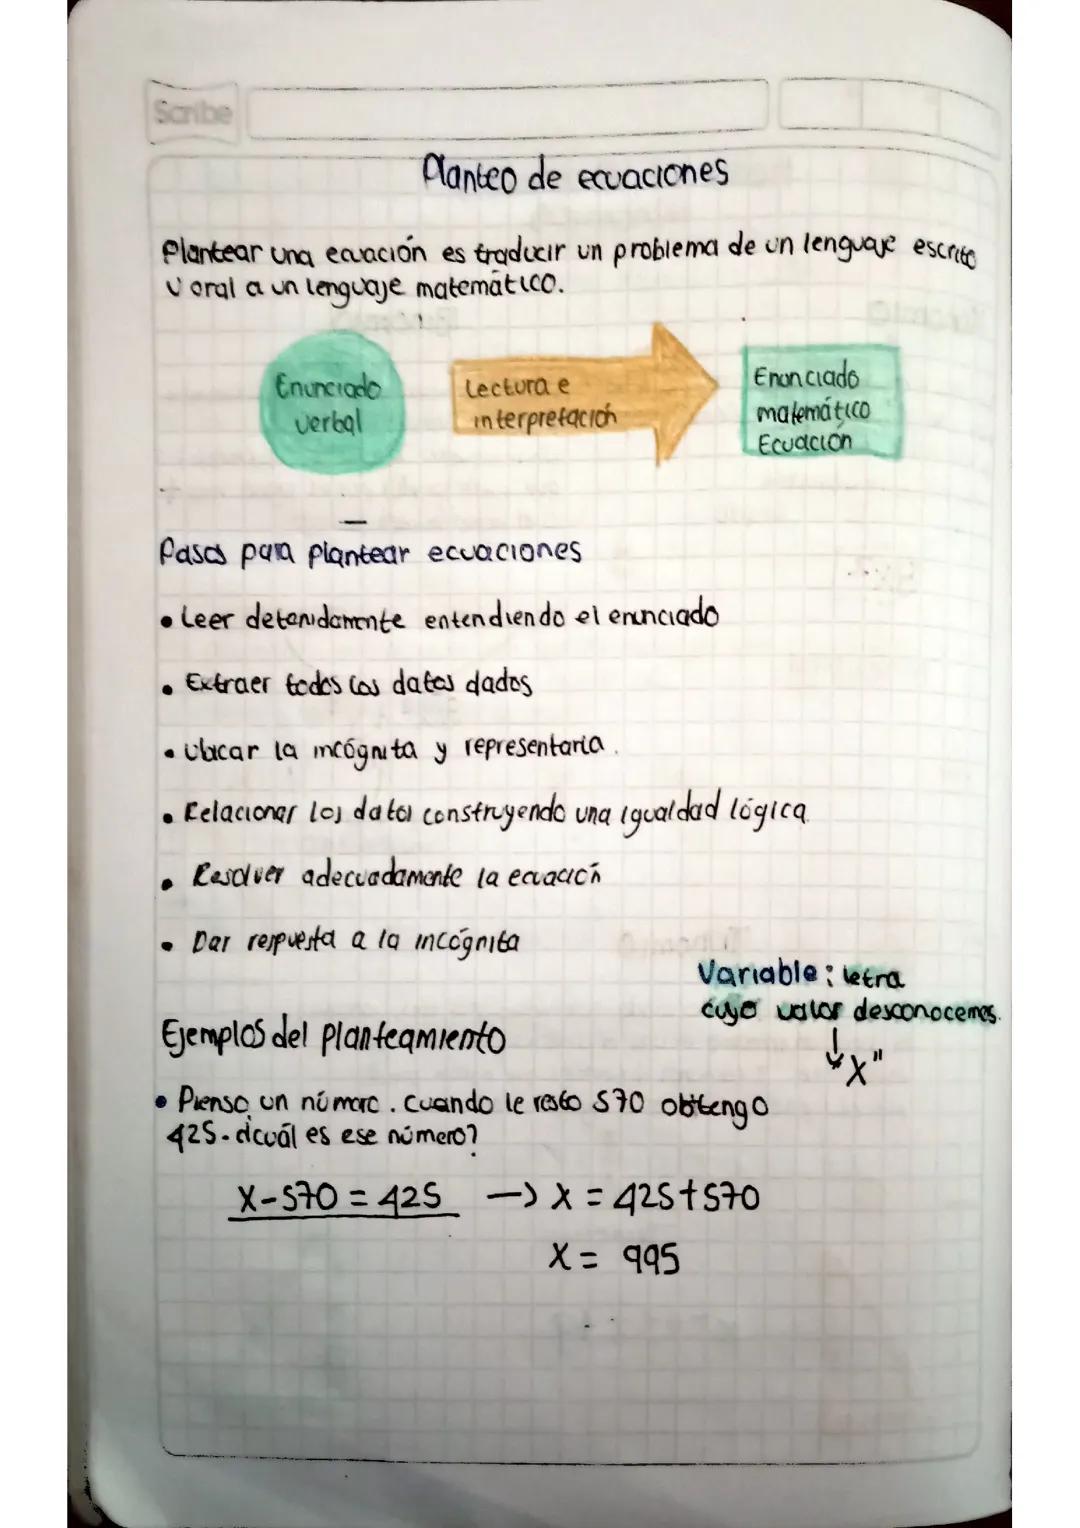 Scribe
Planteo de ecuaciones
Plantear una ecuación es traducir un problema de un lenguaje escrito
U oral a un lenguaje matemático.
Enunciado
verbal
Lectura e
interpretación
Enunciado
matemático
Ecuación
Pasos para plantear ecuaciones
• Leer detenidamente entendiendo el enunciado
• Extraer todos los datos dados
• Ubicar la incógnita y representarla.
• Relacionar los datos construyendo una igualdad lógica.
• Resolver adecuadamente la ecuación
• Dar respuesta a la incógnita
Variable: letra
cuyo valor desconocemos.
↓
X"
Ejemplos del planteamiento
• Pienso un número. Cuando le resto 570 obtengo
425. ¿cuál es ese número?
X-570 = 425 → X = 425+570
X = 995